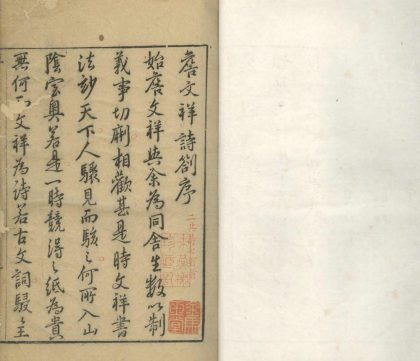 詹文祥詩劄序
始詹文祥與余為同舍生數以制
義事切劘相歡甚是時文祥書
法紗天下人驟見而駭之何所入山
陰室奧若是一時競得之紙為貴
無何而文祥為詩若古文詞駸至